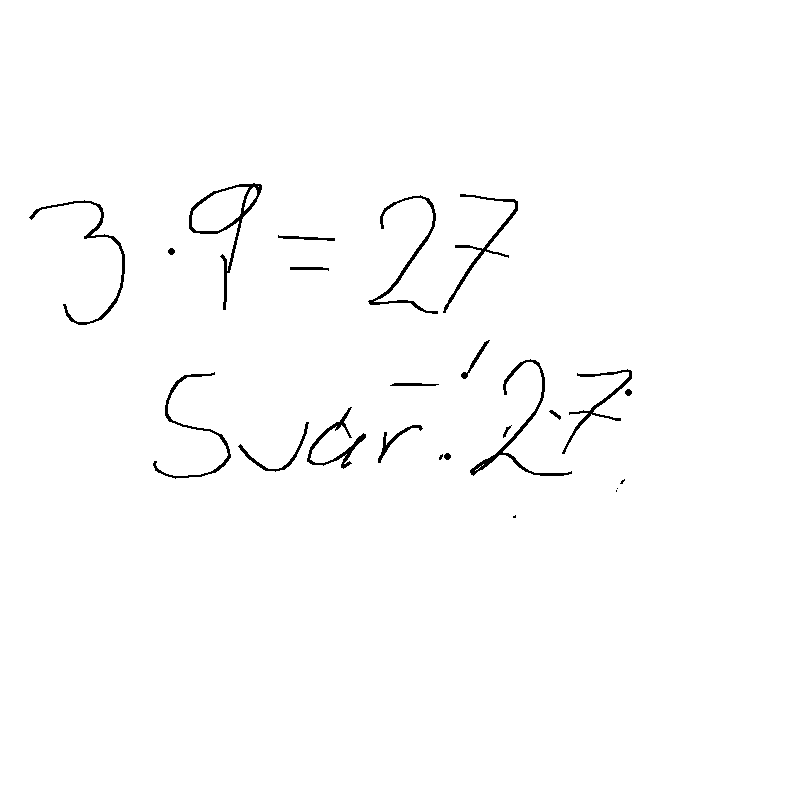 3 · 9 = 27
Svar: 27